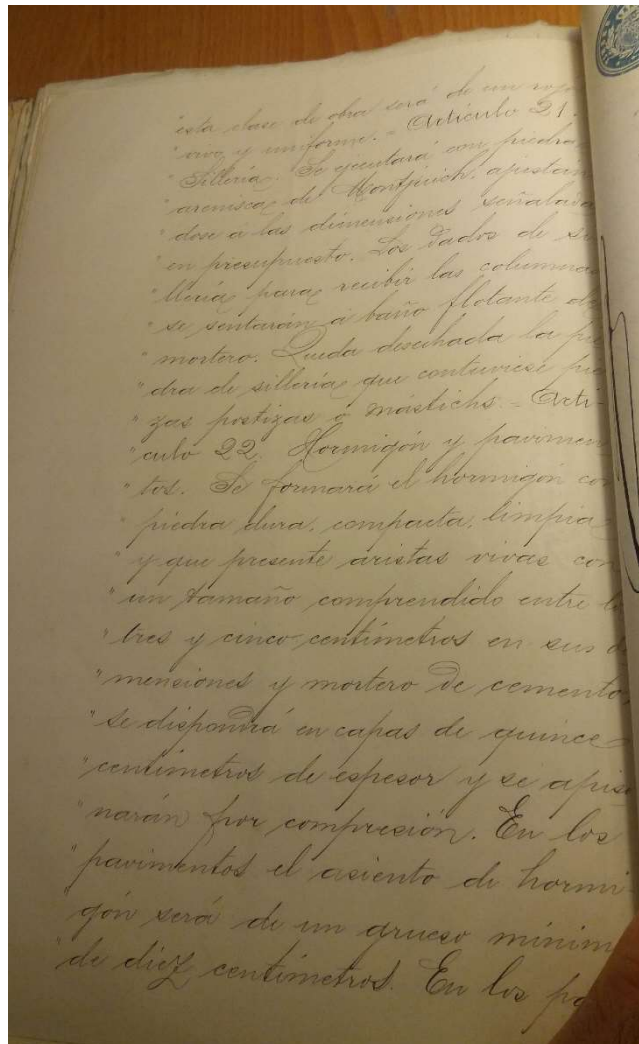 "esta clase de obra será de un rojo
"vivo y uniforme. = Artículo 21.
"Sillería. Se ejecutará con piedra
arenisca de Montjuich, ajustán
"dose a las dimensiones señalada
"en presupuesto. Los dados de si
"llería para recibir las columna
"se sentarán á baño flotante de
"mortero. Queda desechada la pie
"dra de sillería que contuviese pie
"zas postizas ó mástichs. = Artí-
"culo 22. Hormigón y pavimen
"tos. Se formará el hormigón co
"piedra dura, compacta, limpia
"y que presente aristas vivas con
"un tamaño comprendido entre lo
"tres y cinco centímetros en sus d
"mensiones y mortero de cemento,
"se dispondrá en capas de quince
"centímetros de espesor y se apiso
"narán por compresión. En los
"pavimentos el asiento de hormi
"gón será de un grueso mínim
"de diez centímetros. En los pa